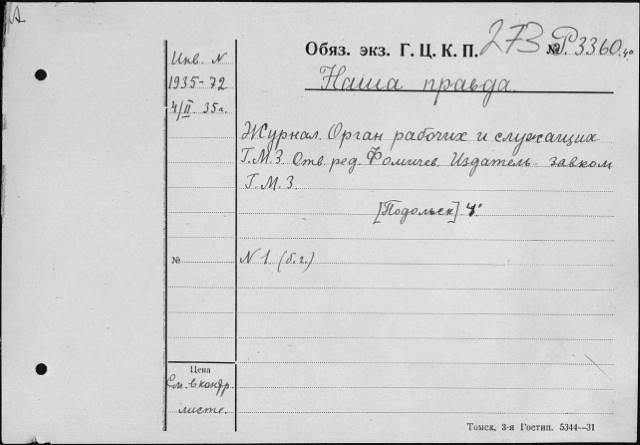 А
Обяз. экз. Г. Ц. К. П. 273 № Р.3360 4°
Наша правда.
Инв. N
1935-72
4/II. 35г.
Журнал. Орган рабочих и служащих
Г.М.З. Отв. ред. Фомичев. Издатель - завком
Г.М.З.
[Подольск] 4°.
№ N 1. (б.г.)
Цена
См. в контр.
листе.
Томск, 3-я Гостип. 5344—31